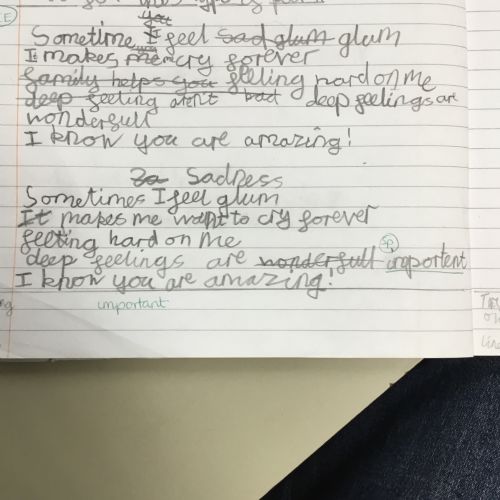 you
Sometime I feel sad glum glum
I makes me cry forever
family helps you feeling hard on me
deep feeling arent bad deep feelings are
wonderfull
I know you are amazing!
Sadness
Sometimes I feel glum
It makes me want to cry forever
feeling hard on me
deep feelings are wonderfull importent
sp
I know you are amazing!
important